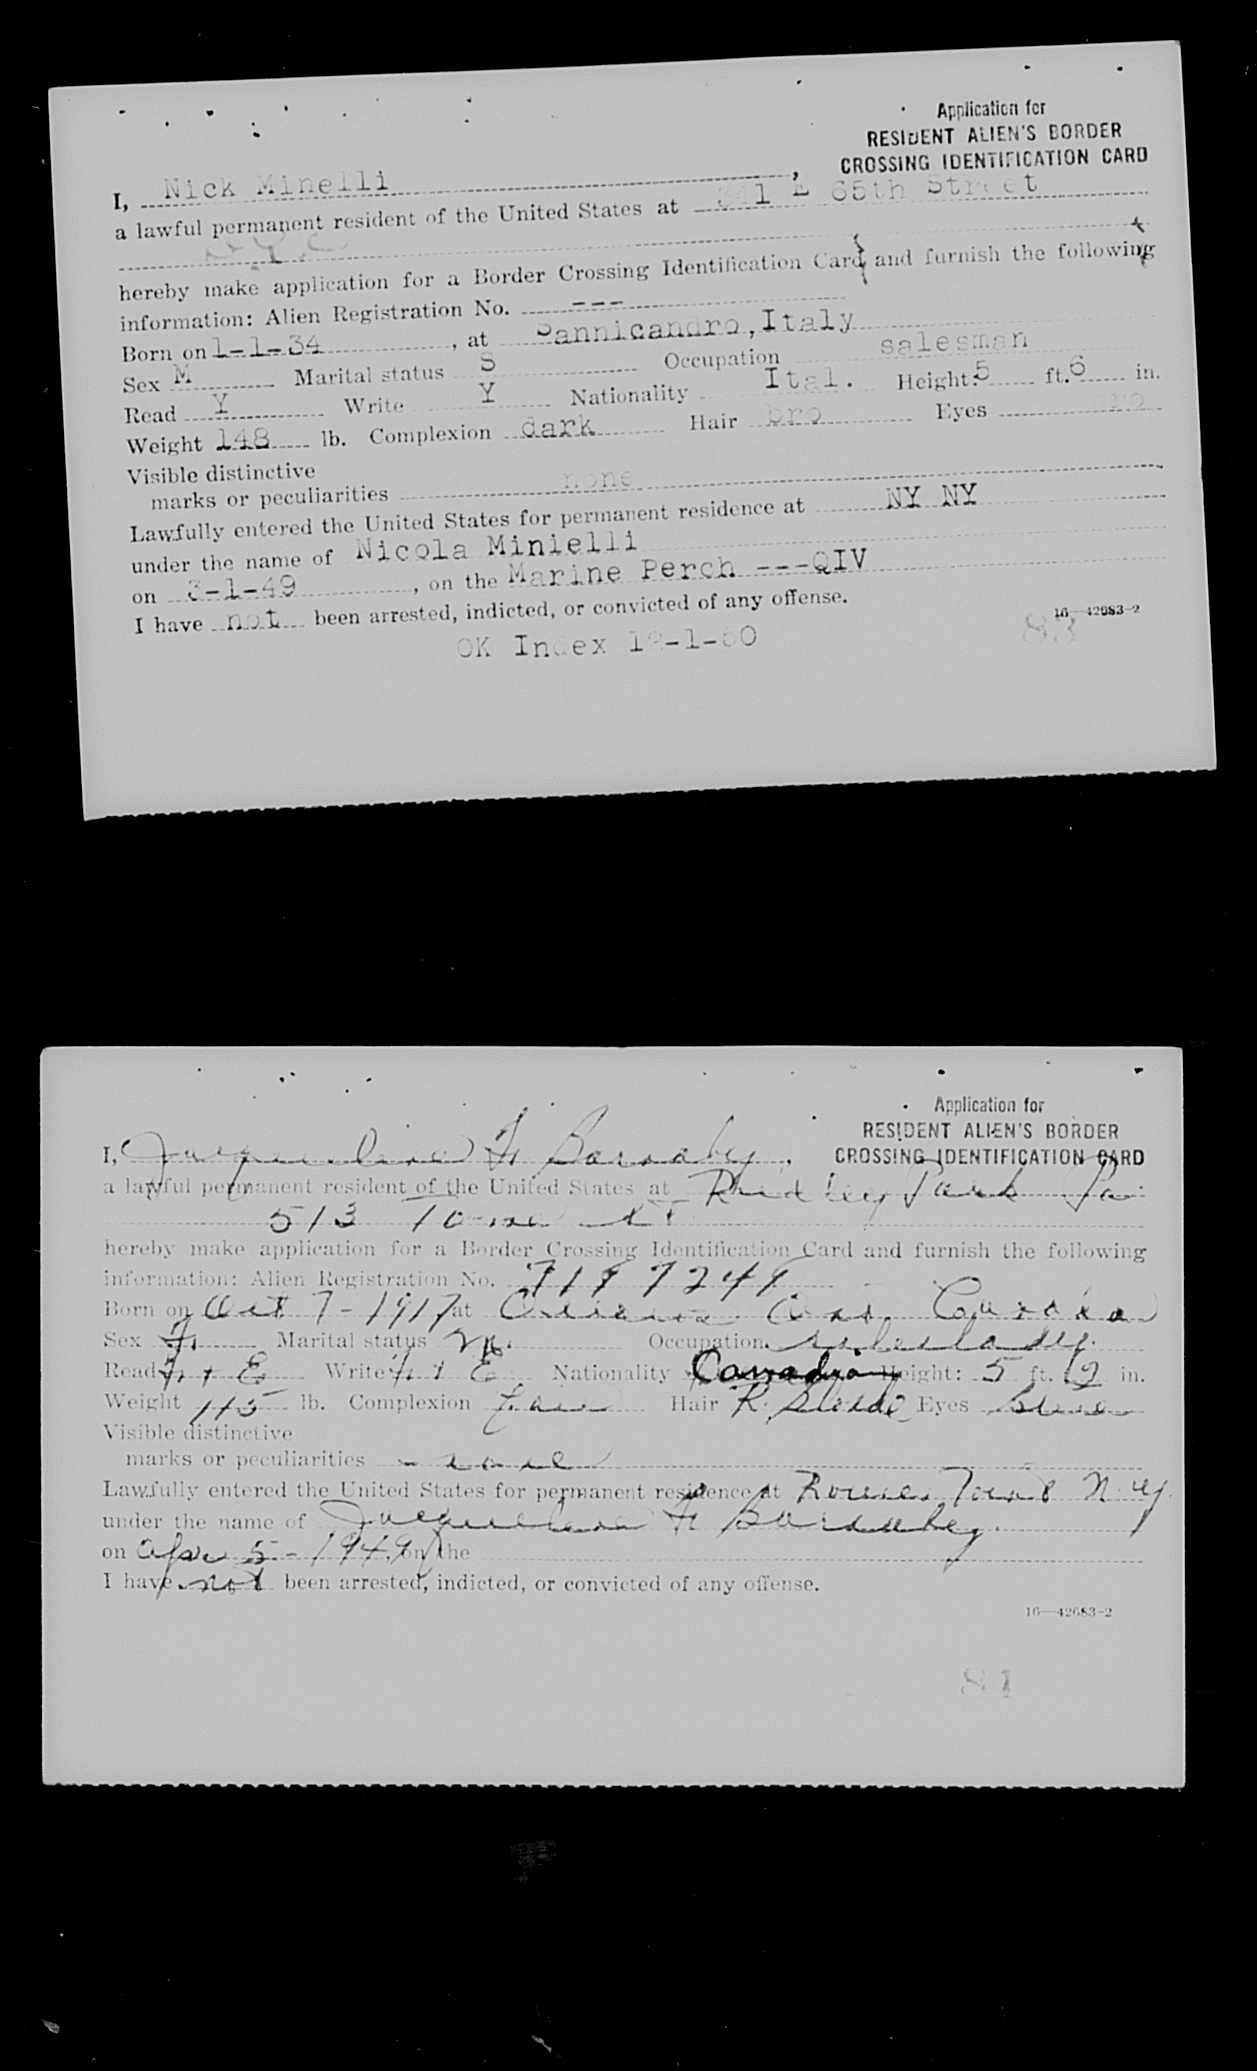 Application for
RESIDENT ALIEN'S BORDER
CROSSING IDENTIFICATION CARD
I, Nick Minelli,
a lawful permanent resident of the United States at 341 E 65th Street
NYC
hereby make application for a Border Crossing Identification Card and furnish the following
information: Alien Registration No. ---
Born on 1-1-34, at Sannicandro, Italy
Sex M Marital status S Occupation salesman
Read Y Write Y Nationality Ital. Height: 5 ft. 6 in.
Weight 148 lb. Complexion dark Hair bro Eyes bro
Visible distinctive
marks or peculiarities none
Lawfully entered the United States for permanent residence at NY NY
under the name of Nicola Minielli
on 3-1-49, on the Marine Perch ---QIV
I have not been arrested, indicted, or convicted of any offense.
16—42683-2
OK Index 12-1-50
83
Application for
RESIDENT ALIEN'S BORDER
CROSSING IDENTIFICATION CARD
I, Jacqueline F. Barnaby,
a lawful permanent resident of the United States at Ridley Park Pa
513 St
hereby make application for a Border Crossing Identification Card and furnish the following
information: Alien Registration No.
Born on Oct 7-1917 at Ont. Canada
Sex F. Marital status M. Occupation saleslady.
Read F + E Write F + E Nationality Canadian Height: 5 ft. 2 in.
Weight 115 lb. Complexion Fair Hair R. Blonde Eyes Blue
Visible distinctive
marks or peculiarities - none
Lawfully entered the United States for permanent residence at Rouses Point N.Y.
under the name of Jacqueline F. Barnaby.
on Apr 5-1949, on the
I have not been arrested, indicted, or convicted of any offense.
16—42683-2
81